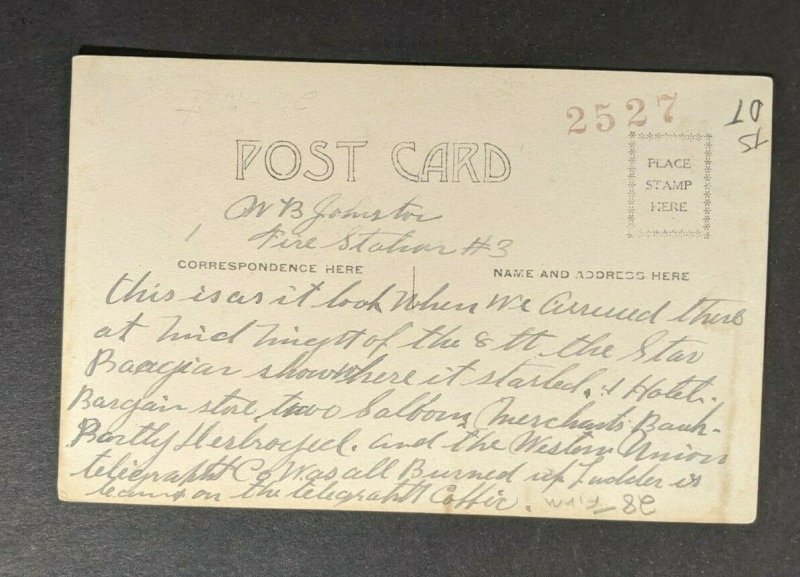 2527
POST CARD
PLACE
STAMP
HERE
W B Johnston
Fire Station #3
CORRESPONDENCE HERE
NAME AND ADDRESS HERE
this is as it look when We arrived there
at mid of the 8 th. the Star
show where it started. 1 Hotel.
Bargain store two Saloon Merchants Bank
Partly and the Western Union
telegrapht Co Was all Burned up Ladder is
on the telegrapht